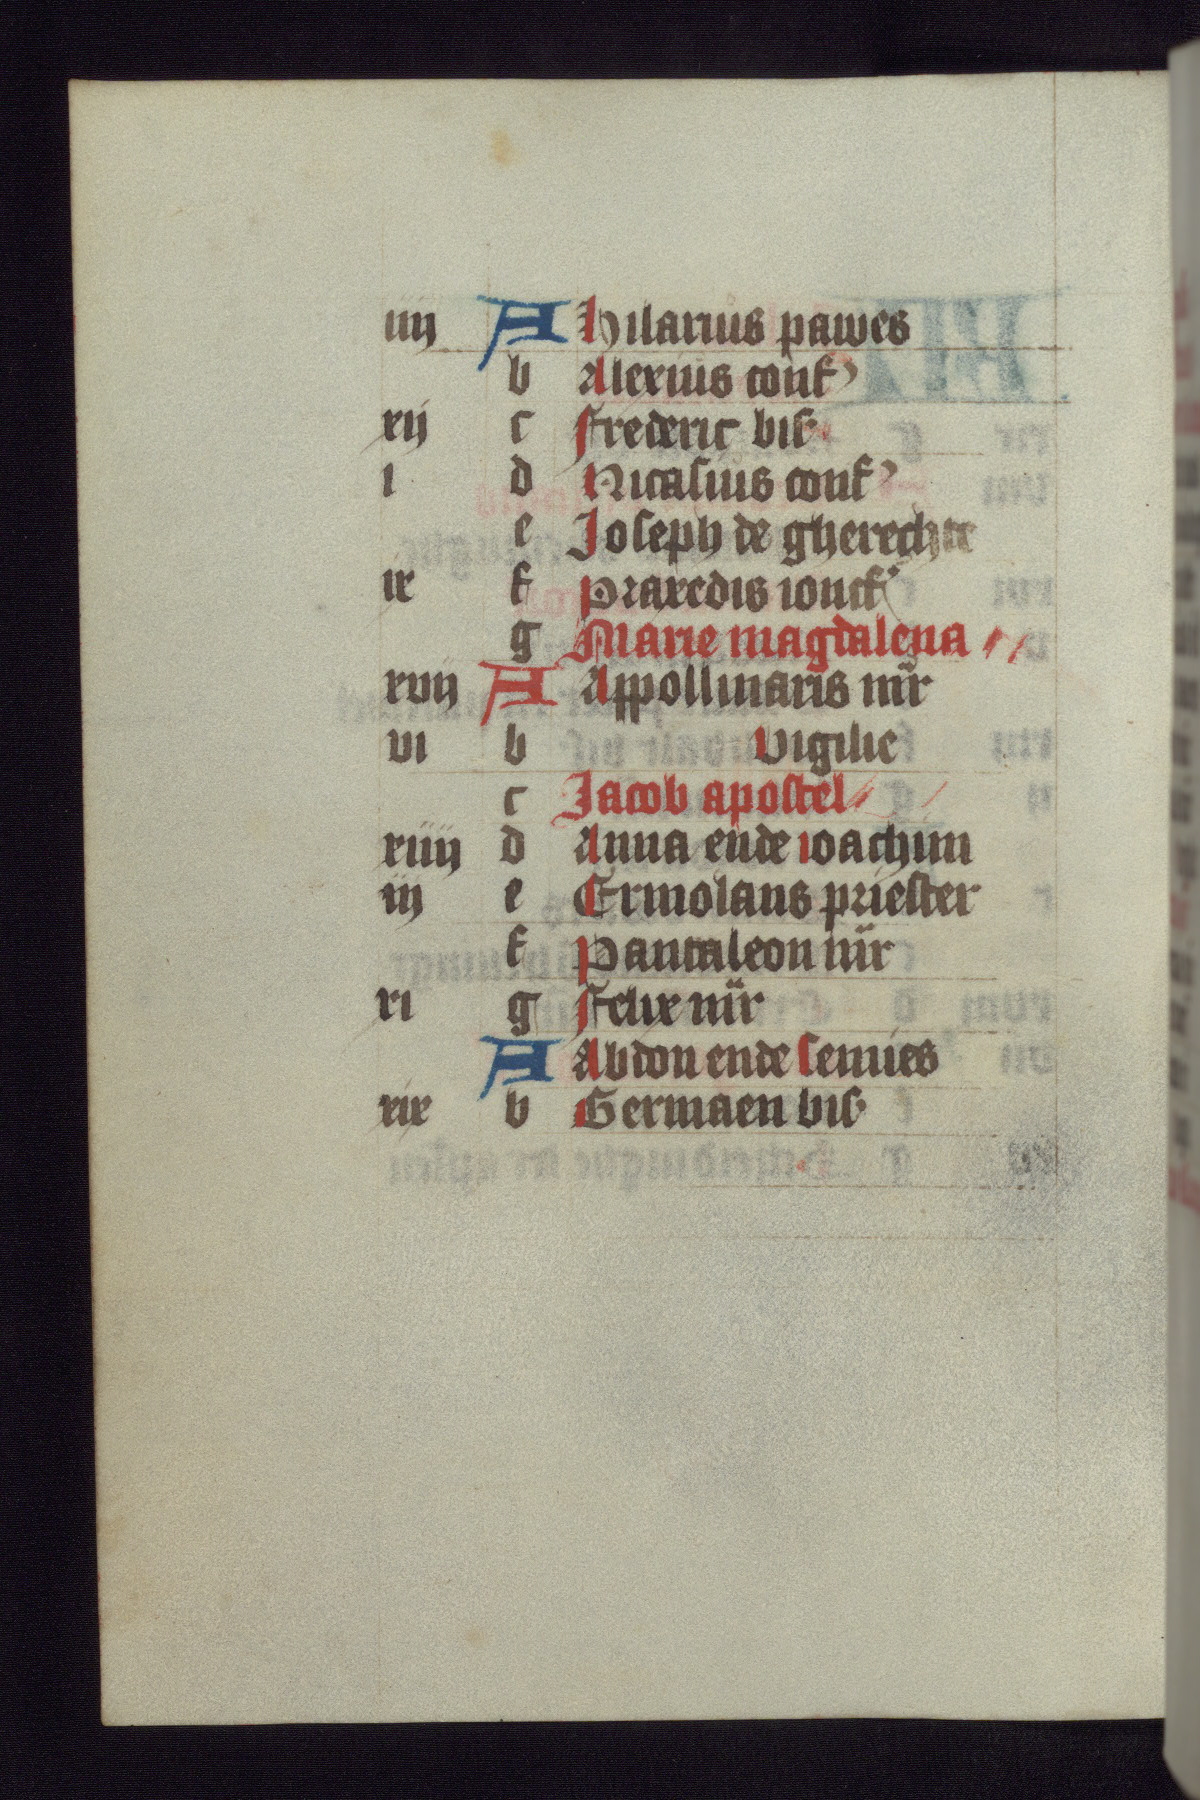 iiij A Hilarius pawes
b Alexius conf
xij c Frederic bis
i d Nicasius conf
e Joseph de gherechte
ix f Praxedis ioncf
g Marie magdalena
xvij A Appollinaris mr
vi b Vigilie
c Jacob apostel
xiiij d Anna ende ioachim
iij e Ermolaus priester
f Pantaleon mr
xi g Felix mr
A Abdon ende sennes
xix b Germaen bis